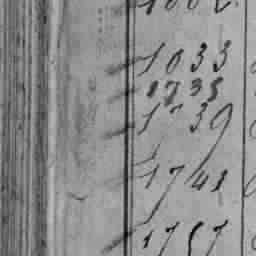 1033
1735
1739
1741
1757